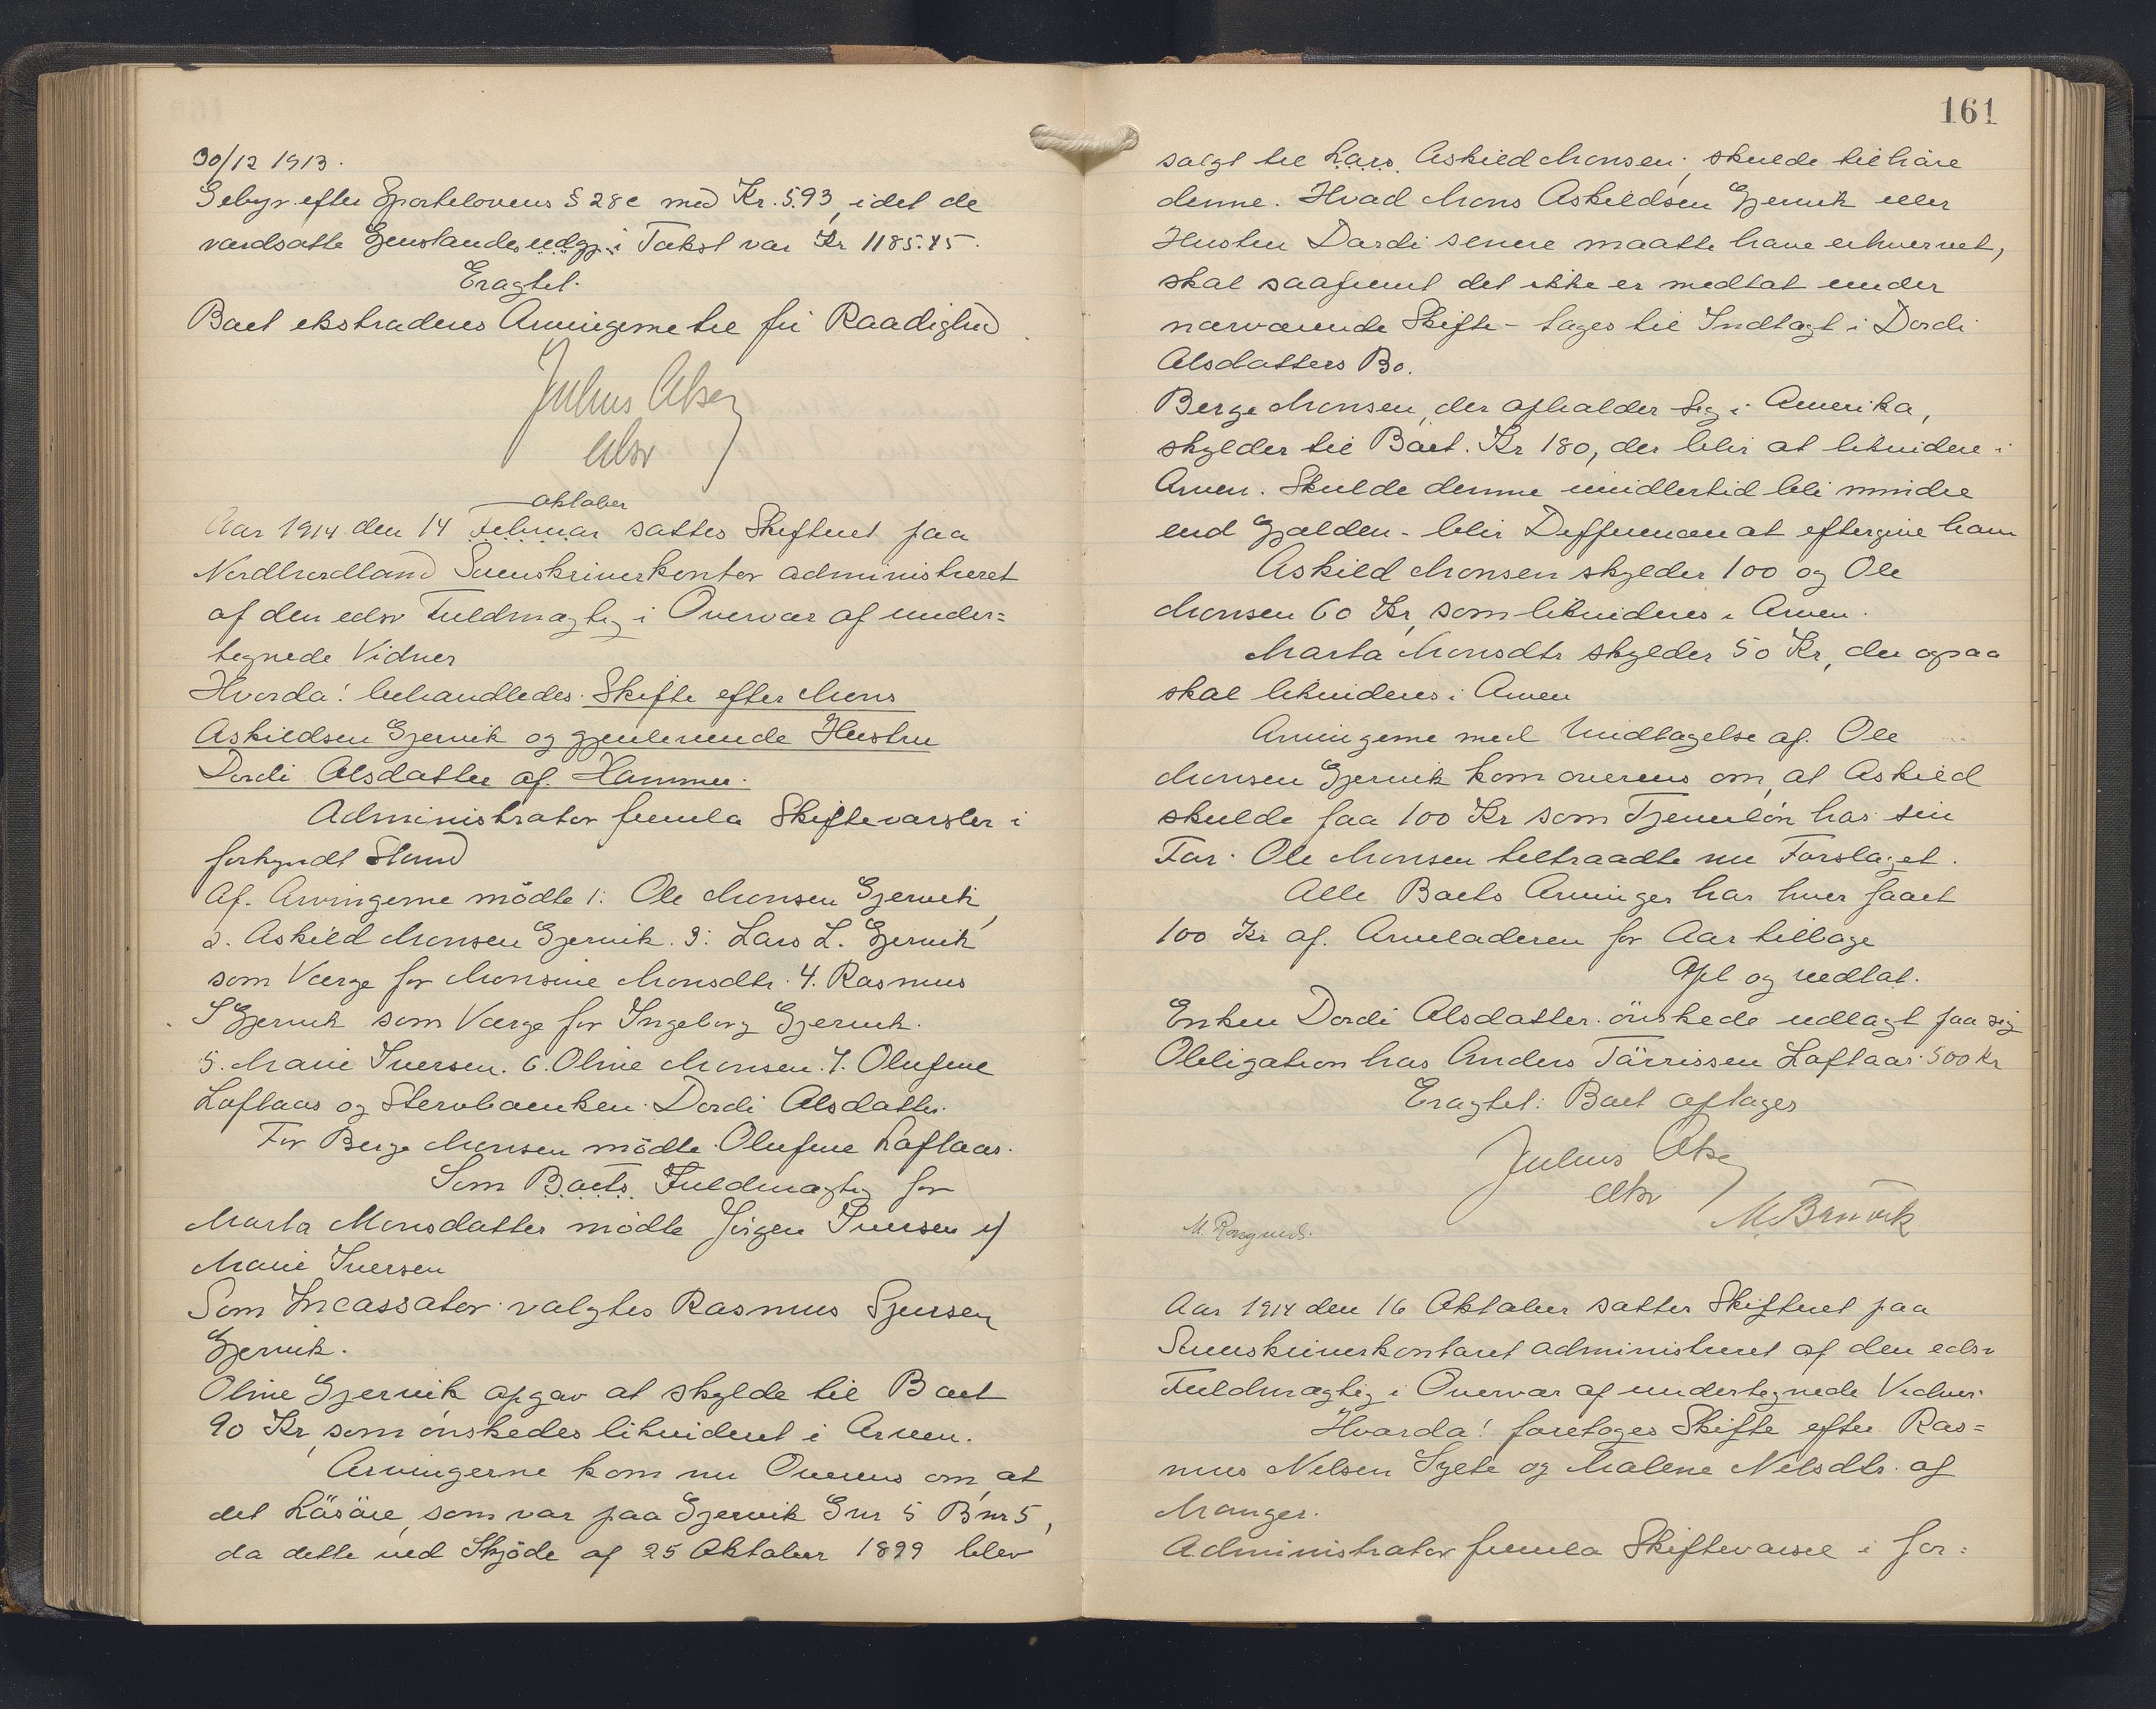 30/12 1913.
Gebyr efter Sportelovens § 28c med Kr. 5.93, idet de
værdsatte Gjenstandes udgj. i Takst var Kr 1185.45.
Eragtet.
Boet ekstraderes Arvingerne til fri Raadighed.
Julius Olsen
edsv
oktober
Aar 1914 den 14 Februar sattes Skifteret paa
Nordhordland Sorenskriverkontor administreret
af den edsv Fuldmægtig i Overvær af under=
tegnede Vidner
Hvorda! behandledes Skifte efter Mons
Askildsen Gjervik og gjenlevende Hustru
Dordi Olsdatter af Hammer.
Administrator fremla Skiftevarsler i
forkyndt Stand
Af Arvingerne mödte 1: Ole Monsen Gjervik,
2. Askild Monsen Gjervik. 3: Lars L. Gjervik
som Værge for Monsine Monsdtr. 4. Rasmus
S Gjervik som Værge for Ingeborg Gjervik.
5. Marie Iversen. 6. Oline Monsen. 7. Olufine
Loftaas og Stervboenken Dordi Olsdatter.
For Berge Monsen mödte Olufine Loftaas.
Som Boets Fuldmægtig for
Marta Monsdatter mödte Jörgen Iversen g/
Marie Iversen
Som Incassator valgtes Rasmus Sjursen
Gjervik.
Oline Gjervik opgav at skylde til Boet
90 Kr, som önskedes likvideret i Arven.
Arvingerne kom nu Overens om, at
det Lösöre, som var paa Gjervik Gnr 5 Bnr 5,
da dette ved Skjöde af 25 Oktober 1899 blev
161
solgt til Lars Askild Monsen, skulde tilhöre
denne. Hvad Mons Askildsen Gjervik eller
Hustru Dordi senere maatte have erhvervet,
skal saafremt det ikke er medtat under
nærværende Skifte - tages til Indtægt i Dordi
Olsdatters Bo.
Berge Monsen, der opholder sig i Amerika,
skylder til Boet Kr 180, der blir at likvidere i
Arven. Skulde denne imidlertid bli mindre
end Gjælden - blir Differencen at eftergive ham
Askild Monsen skylder 100 og Ole
Monsen 60 Kr, som likvideres i Arven.
Marta Monsdtr skylder 50 Kr, der ogsaa
skal likvideres i Arven
Arvingerne med Undtagelse af Ole
Monsen Gjervik kom overens om, at Askild
skulde faa 100 Kr som Tjenerlön hos sin
Far. Ole Monsen tiltraadte nu Forslaget.
Alle Boets Arvinger har hver faaet
100 Kr af Arveladeren for Aar tilbage
Opl og vedtat.
Enken Dordi Olsdatter önskede udlagt paa sig
Obligation hos Anders Törrissen Loftaas 500 Kr
Eragtet: Boet optages
Julius Olsen
edsv
M Brurvik
Aar 1914 den 16 Oktober sattes Skifteret paa
Sorenskriverkontoret administreret af den edsv
Fuldmægtig i Overvær af undertegnede Vidner
Hvorda! foretoges Skifte efter Ras=
mus Nilsen Syete og Malene Nilsdtr. af
Manger.
Administrator fremla Skiftevarsel i for=